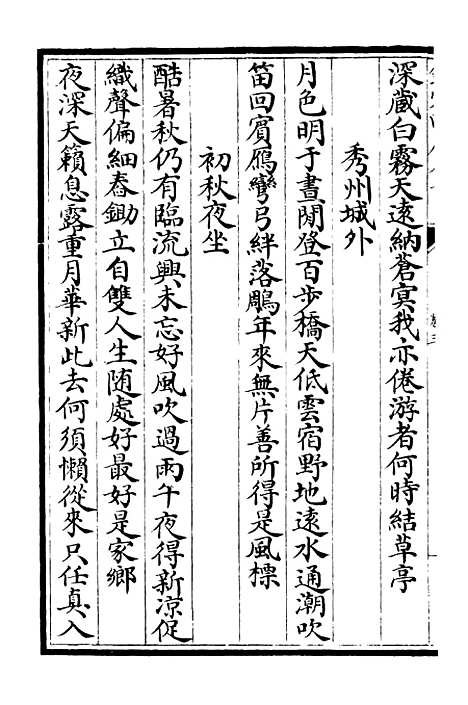 深藏白霧天遠納蒼冥我亦倦游者何時結草亭
秀州城外
月色明于晝閒登百步橋天低雲宿野地遠水通潮吹
笛回賓鴈彎弓絆落鵰年來無片善所得是風標
初秋夜坐
酷暑秋仍有臨流興未忘好風吹過雨午夜得新凉促
織聲偏細舂鋤立自雙人生随處好最好是家鄉
夜深天籟息露重月華新此去何須懶從來只任真入